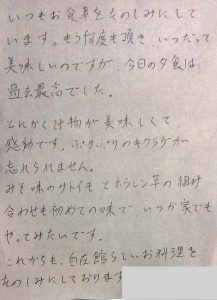 いつもお食事をたのしみにして
います。もう何度も頂き、いつだって
美味しいのですが、今日の夕食は
過去最高でした。
とにかく汁物が美味しくて
感動です。ぷりぷりのキクラゲが
忘れられません。
みそ味のサトイモとホウレン草の組み
合わせも初めての味で、いつか家でも
やってみたいです。
これからも、自在館らしいお料理を
たのしみにしております